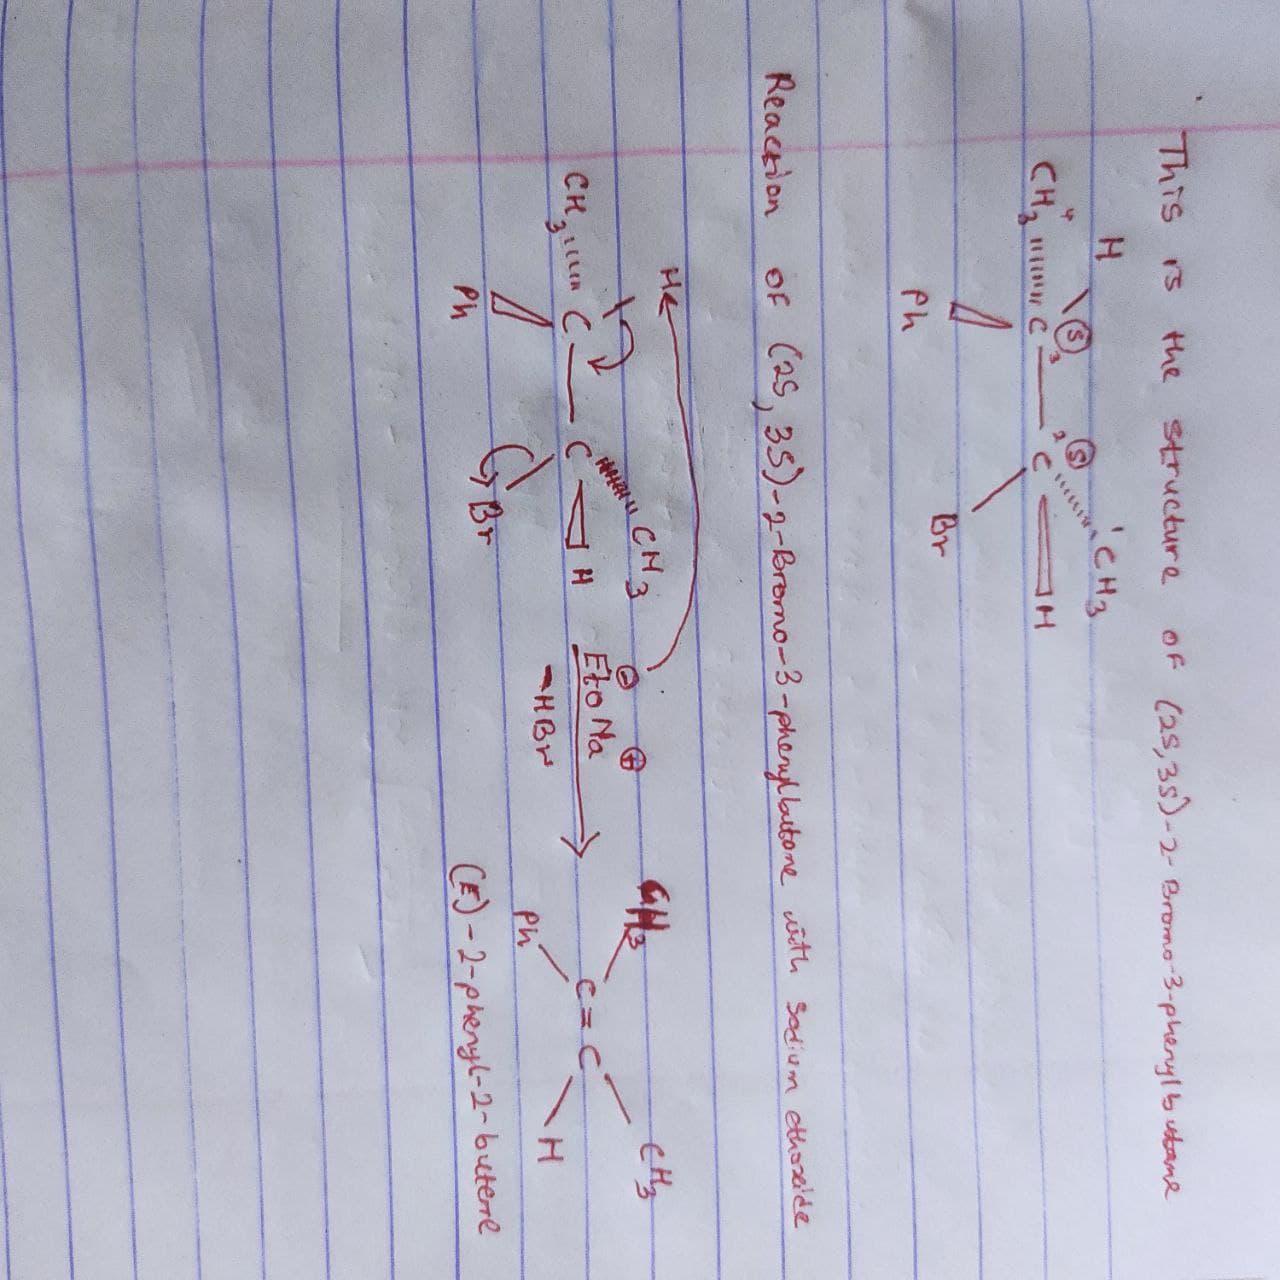 This is the structure of (2S,3S)-2-Bromo-3-phenylbutane
H
CH3 4 C 3 (S) 2 C (S) 1 CH3
H
Ph
Br
Reaction of (2S,3S)-2-Bromo-3-phenylbutane with sodium ethoxide
H
CH3 C C CH3 H
Ph
Br
⊖ ⊕
EtO Na
-HBr
CH3 CH3
C=C
Ph H
(E)-2-phenyl-2-butene